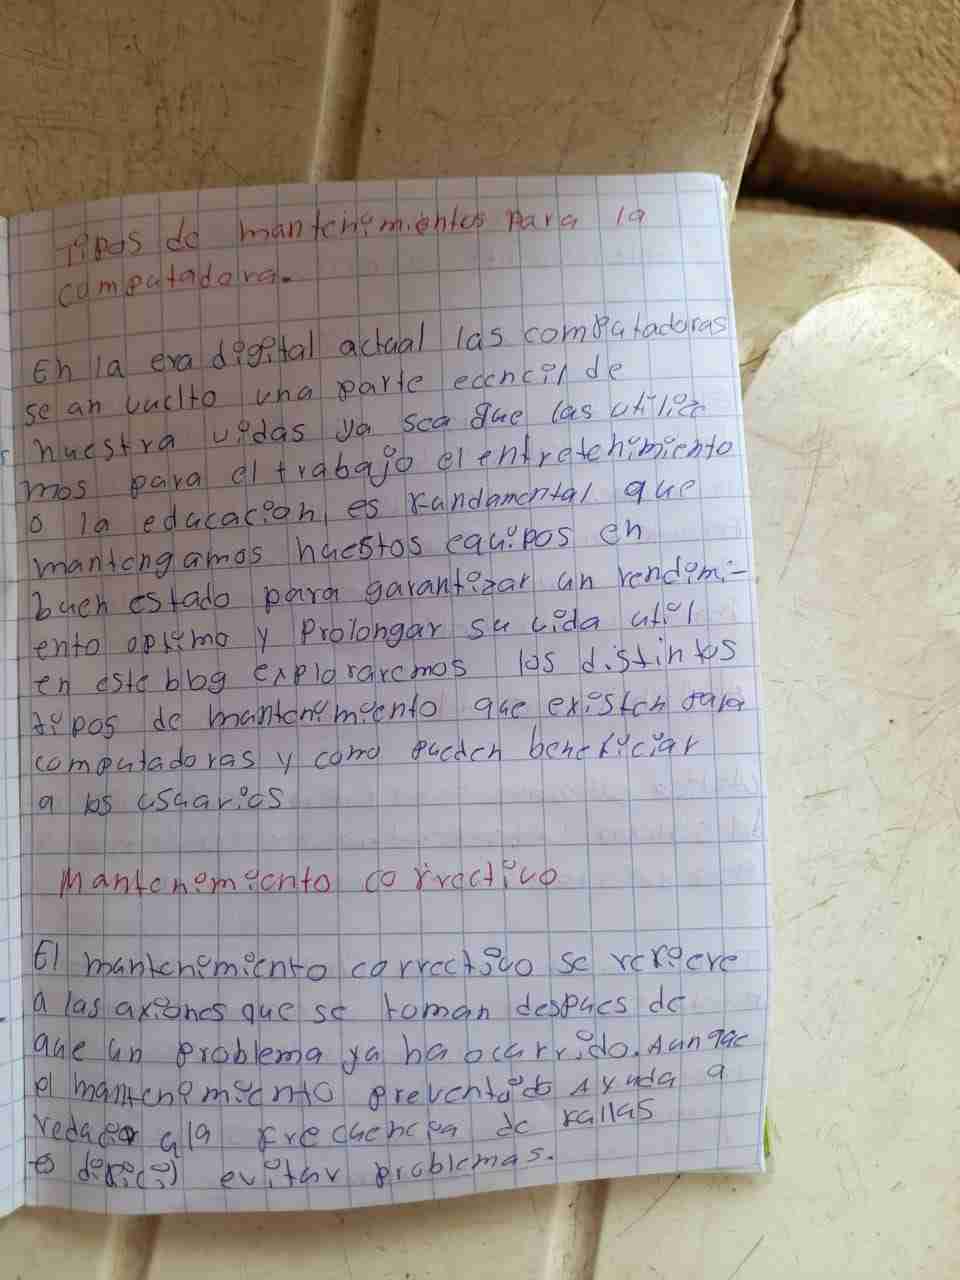 Tipos de mantenimientos para la
computadora.
En la era digital actual las computadoras
se an vuelto una parte ecencil de
nuestra vidas ya sea que las utiliza
mos para el trabajo el entretenimiento
o la educacion, es fundamental que
mantengamos nuestos equipos en
buen estado para garantizar un rendimi-
ento optimo y Prolongar su vida util
en este blog exploraremos los distintos
tipos de mantenimiento que existen para
computadoras y como pueden beneficiar
a los usuarios
Mantenimiento correctivo
El mantenimiento correctivo se refiere
a las axiones que se toman despues de
que un problema ya ha ocurrido. Aunque
el mantenimiento preventivo Ayuda a
reducir a la frecuencia de fallas
es dificil evitar problemas.